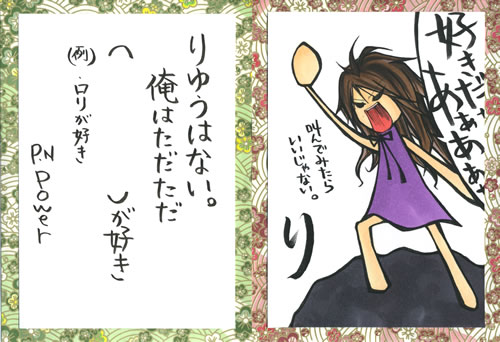 りゅうはない。
俺はただただ
(　　　)が好き
(例)・ロリが好き
P.N Power
好きだぁ
あぁぁぁぁ
叫んでみたら
いいじゃない。
り